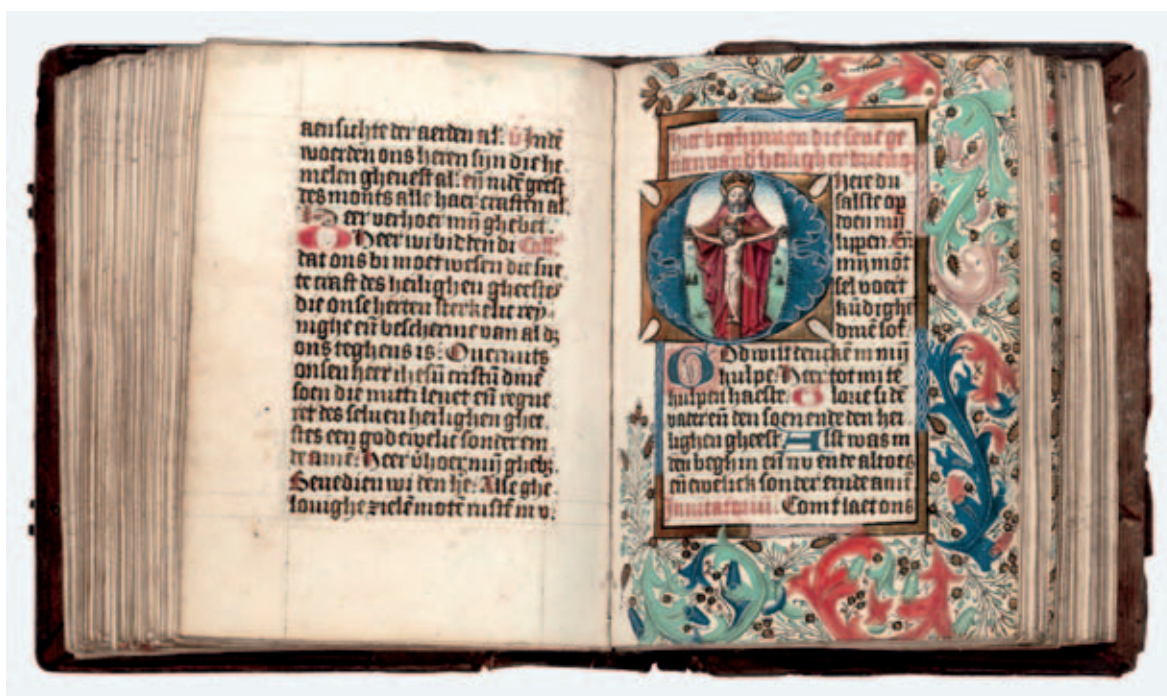 aensichte der aerden al. Vnde
woerden ons heren sijn die he
melen gheuest al. en in dē geest
des monts alle haer craften al.
Heer verhoer mijn ghebet.
Heer wi bidden di Coll'
dat ons bi moet wesen die sue
te craft des heilighen gheestes
die onse herten sterkelic rey
nighe eñ bescherme van al dz
ons teghens is: Ouermits
onsen heer ihesū cristū dinē
soen die mitti leuet eñ regne
ret des seluen heilighen ghee
stes een god ewelic sonder ein
de amē. Heer v̄hoer mijn ghebz.
Benedien wi den he. Alle ghe
louighe zielē motē rustē in v.
Hier beghinnen die seuē ge
Here du
salste op
doen mij
lippen. Eñ
mijn mōt
sel voert
kūdighē
dinē lof.
God wilt dencken in mijn
hulpe. Heer tot mi te
hulpen haeste. Glorie si dē
vader eñ den soen ende den hei
lighen gheest Alst was in
den beghin eñ nv ende altoes
eñ ewelick sonder einde amē
Inuitatoriū. Comt laet ons